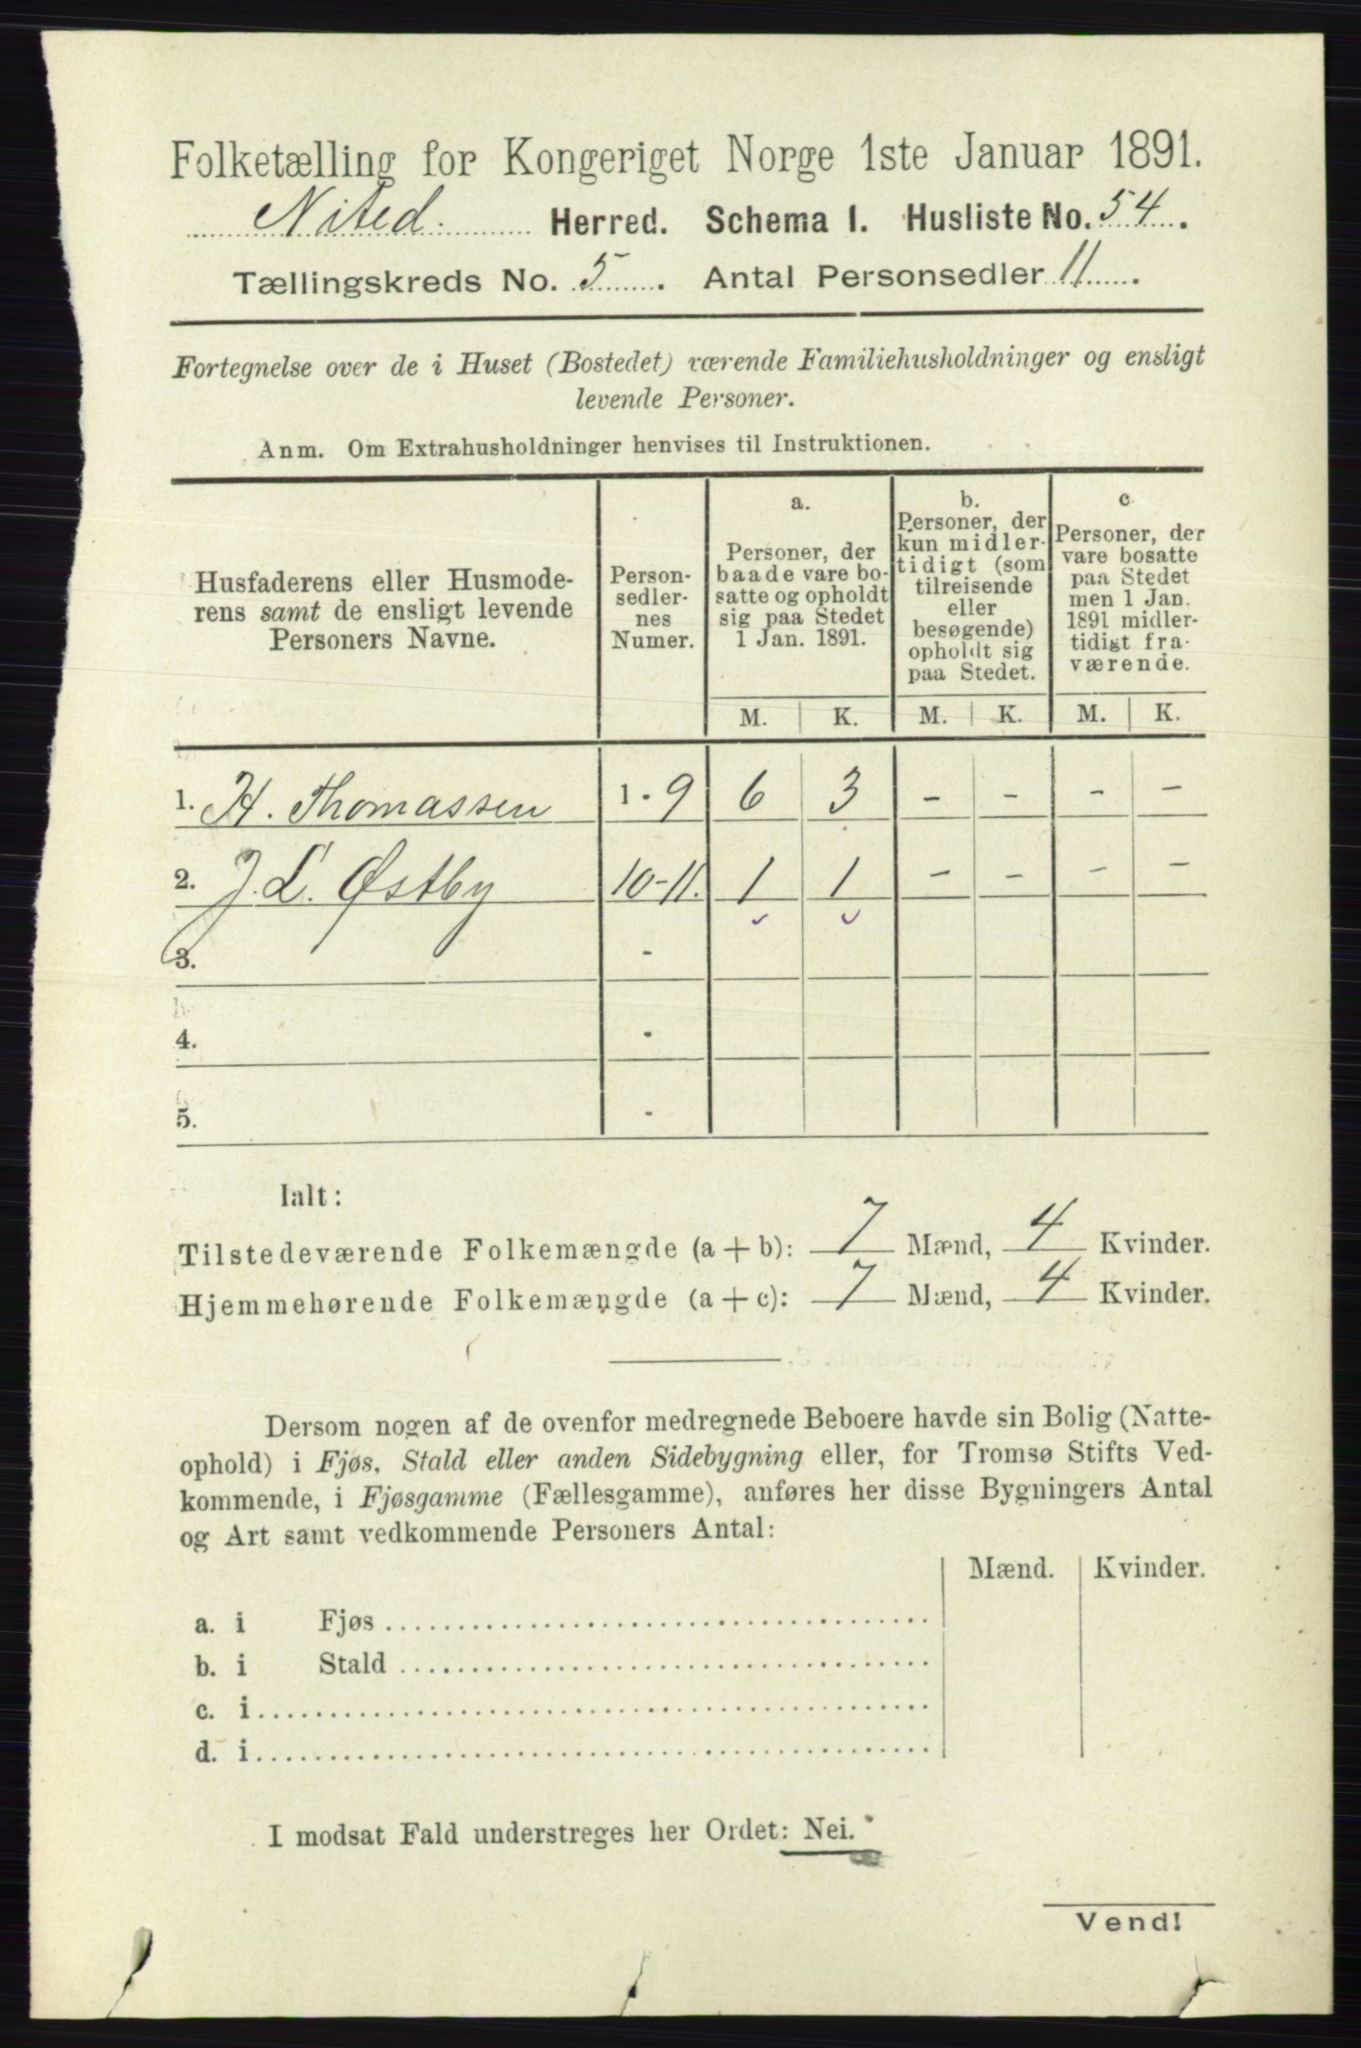 Folketælling for Kongeriget Norge 1ste Januar 1891.
Nited. Herred. Schema I. Husliste No. 54.
Tællingskreds No. 5. Antal Personsedler 11.
Fortegnelse over de i Huset (Bostedet) værende Familiehusholdninger og ensligt
levende Personer.
Anm. Om Extrahusholdninger henvises til Instruktionen.
Husfaderens eller Husmode-
rens samt de ensligt levende
Personers Navne.
Person-
sedler-
nes
Numer.
a.
Personer, der
baade vare bo-
satte og opholdt
sig paa Stedet
1 Jan. 1891.
b.
Personer, der
kun midler-
tidigt (som
tilreisende
eller
besøgende)
opholdt sig
paa Stedet.
c
Personer, der
vare bosatte
paa Stedet
men 1 Jan.
1891 midler-
tidigt fra-
værende.
M. K. M. K. M. K.
1. H. Thomassen 1-9 6 3 - - - -
2. J. L. Østby 10-11. 1 1 - - - -
3. -
4. -
5. -
Ialt:
Tilstedeværende Folkemængde (a + b): 7 Mænd, 4 Kvinder.
Hjemmehørende Folkemængde (a + c): 7 Mænd, 4 Kvinder.
Dersom nogen af de ovenfor medregnede Beboere havde sin Bolig (Natte-
ophold) i Fjøs, Stald eller anden Sidebygning eller, for Tromsø Stifts Ved-
kommende, i Fjøsgamme (Fællesgamme), anføres her disse Bygningers Antal
og Art samt vedkommende Personers Antal:
Mænd. Kvinder.
a. i Fjøs
b. i Stald
c. i
d. i
I modsat Fald understreges her Ordet: Nei.
Vend!